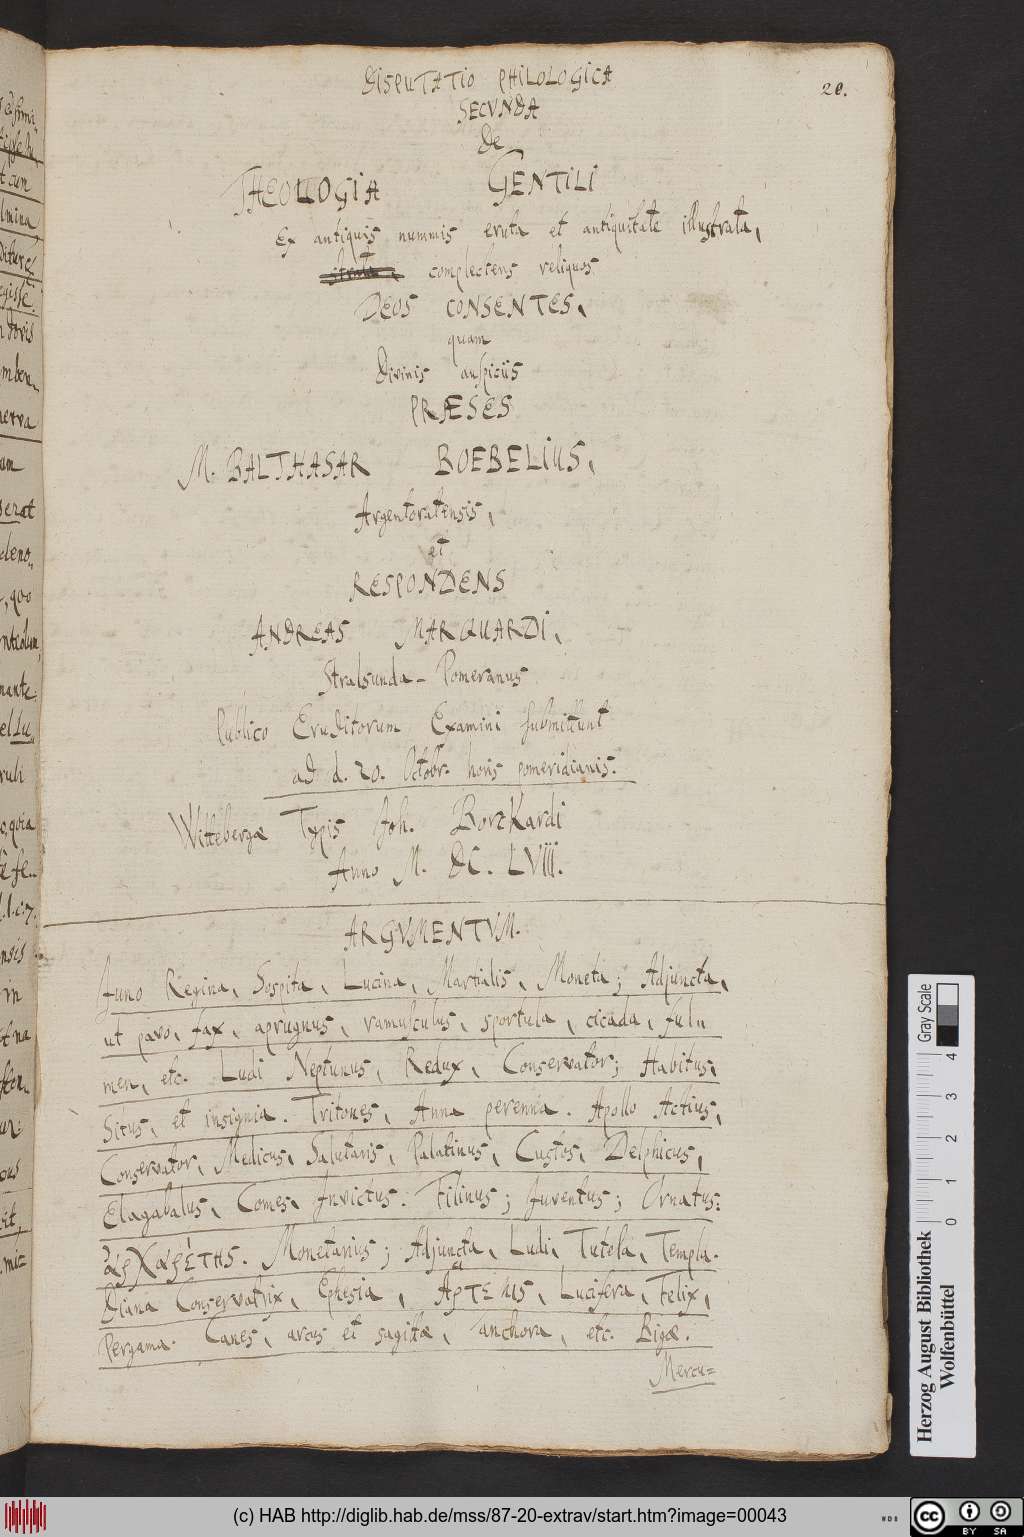 20.
DISPUTATIO PHILOLOGICA
SECVNDA
De
THEOLOGIA GENTILI
Ex antiquis nummis eruta et antiquitate illustrata,
complectens reliquos
DEOS CONSENTES,
quam
Divinis auspiciis
PRÆSES
M. BALTHASAR BOEBELIUS,
Argentoratensis,
et
RESPONDENS
ANDREAS MARQUARDI,
Stralsunda-Pomeranus
Publico Eruditorum Examini submittunt
ad d. 20. Octobr. horis pomeridianis.
Wittebergæ Typis Joh. Borckardi
Anno M. DC. LVIII.
ARGVMENTVM.
Juno Regina, Sospita, Lucina, Martialis, Moneta; Adjuncta,
ut pavo, fax, aprugnus, ramusculus, sportula, cicada, ful„
men, etc. Ludi Neptunus, Redux, Conservator; Habitus,
Situs, et insignia. Tritones, Anna perenna. Apollo Actius,
Conservator, Medicus, Salutaris, Palatinus, Custos, Delphicus,
Elagabalus, Comes, Invictus. Filinus; Juventus; Ornatus:
Monetarius; Adjuncta, Ludi, Tutela, Templa.
Diana Conservatrix, Ephesia, Lucifera, Felix,
Pergama. Canes, arcus et sagitæ, anchora, etc. Bigæ.
Mercu=
Gray Scale
0 1 2 3 4
Herzog August Bibliothek
Wolfenbüttel
(c) HAB http://diglib.hab.de/mss/87-20-extrav/start.htm?image=00043
cc BY SA